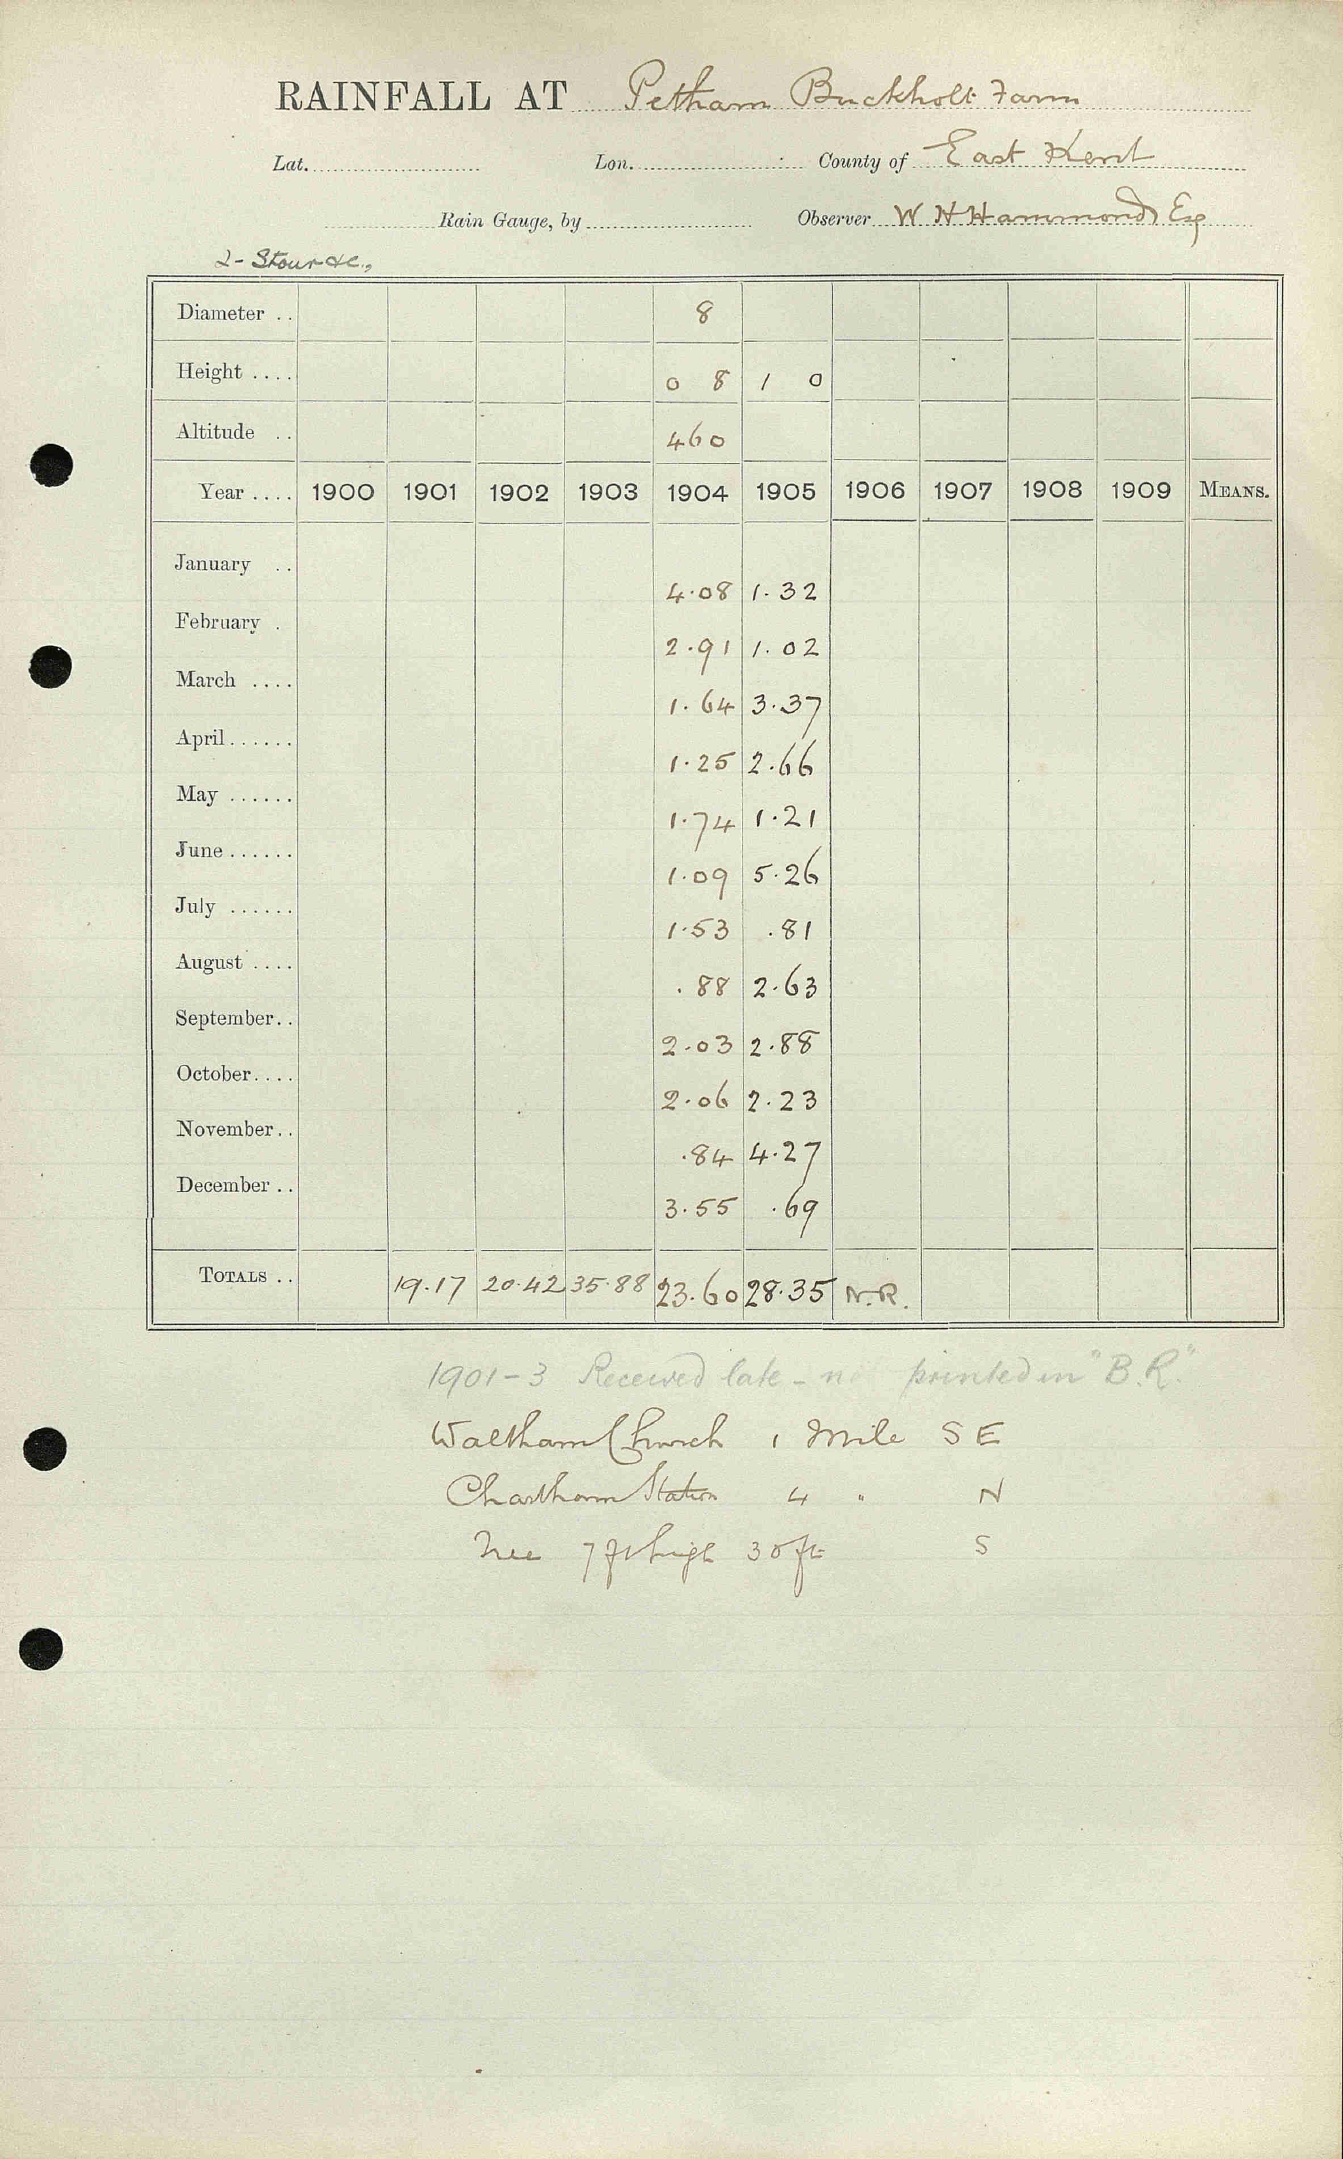 RAINFALL AT Petham Buckholt Farm
Lat. Lon. County of East Kent
Rain Gauge, by Observer W H Hammond Esq
2- Stour &c.,
Diameter .. 8
Height .... 0 8 1 0
Altitude .. 460
Year .... 1900 1901 1902 1903 1904 1905 1906 1907 1908 1909 MEANS.
January .. 4.08 1.32
February . 2.91 1.02
March .... 1.64 3.37
April ...... 1.25 2.66
May ...... 1.74 1.21
June ...... 1.09 5.26
July ...... 1.53 .81
August .... .88 2.63
September.. 2.03 2.88
October.... 2.06 2.23
November.. .84 4.27
December .. 3.55 .69
TOTALS .. 19.17 20.42 35.88 23.60 28.35 N.R.
1901-3 Received late - printed in "B.R."
Waltham Church 1 Mile S E
Chartham Station 4 " N
Tree 7 ft high 30 ft S